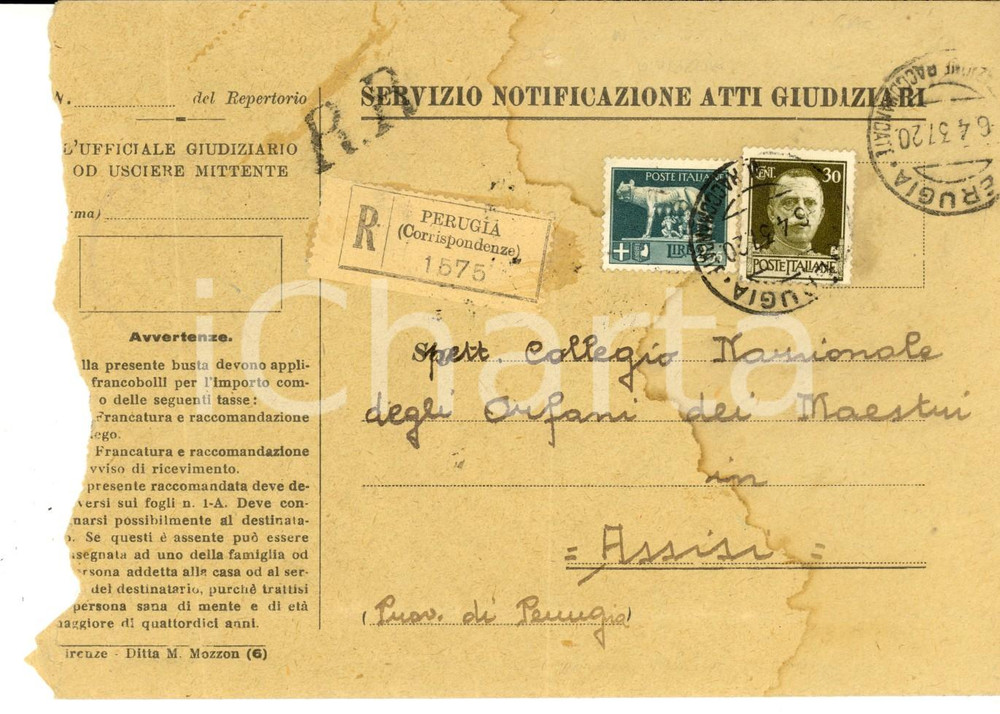 N. del Repertorio
L'UFFICIALE GIUDIZIARIO
OD USCIERE MITTENTE
rma)
Avvertenze.
lla presente busta devono appli-
francobolli per l'Importo com-
o delle seguenti tasse:
Francatura e raccomandazione
ego.
Francatura e raccomandazione
vviso di ricevimento.
presente raccomandata deve de-
versi sui fogli n. 1-A. Deve con-
narsi possibilmente al destinata-
o. Se questi è assente può essere
segnata ad uno della famiglia od
ersona addetta alla casa od al ser-
del destinatario, purchè trattisi
persona sana di mente e di età
maggiore di quattordici anni.
irenze - Ditta M. Mozzon (6)
R.R
SERVIZIO NOTIFICAZIONE ATTI GIUDIZIARI
R PERUGIA
(Corrispondenze)
1575
POSTE ITALIANE
LIRE
CENT. 30
POSTE ITALIANE
PERUGIA RACCOMANDATE
6.4 37.20
Spett. Collegio Nazionale
degli Orfani dei Maestri
in
= Assisi =
(Prov. di Perugia)
iCharta